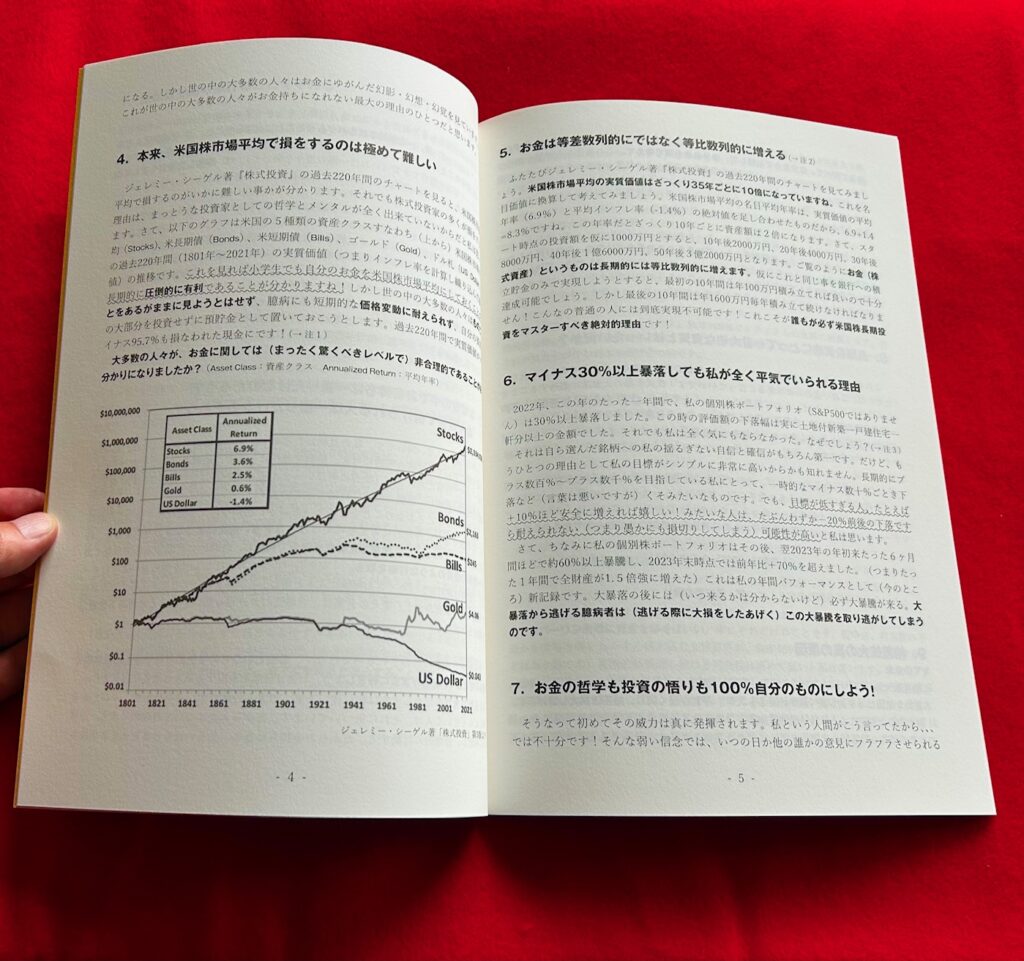 になる。しかし世の中の大多数の人々はお金にゆがんだ幻影・幻想・幻覚を見てい
これが世の中の大多数の人々がお金持ちになれない最大の理由のひとつだと思い
4. 本来、米国株市場平均で損をするのは極めて難しい
ジェレミー・シーゲル著『株式投資』の過去220年間のチャートを見ると、米国株
平均で損するのがいかに難しい事かが分かります。それでも株式投資家の多くが
理由は、まっとうな投資家としての哲学とメンタルが全く出来ていないからだと
ます。さて、以下のグラフは米国の5種類の資産クラスすなわち(上から)米国株
均(Stocks)、米長期債(Bonds)、米短期債(Bills)、ゴールド(Gold)、ドル札(US Do
の過去220年間(1801年~2021年)の実質価値(つまりインフレ率を計算し織り込
値)の推移です。これを見れば小学生でも自分のお金を米国株市場平均にしておく
長期的に圧倒的に有利であることが分かりますね!しかし世の中の大多数の人々は
とをあるがままに見ようとはせず、臆病にも短期的な価格変動に耐えられず、自分の
の大部分を投資せずに預貯金として置いておこうとします。過去220年間で実質価値
イナス95.7%も損なわれた現金にです!(→注1)
大多数の人々が、お金に関しては(まったく驚くべきレベルで)非合理的であることが
分かりになりましたか?(Asset Class:資産クラス Annualized Return:平均年率)
$10,000,000
$1,000,000
$100,000
$10,000
$1,000
$100
$10
$1
$0.1
$0.01
Asset Class Annualized Return
Stocks 6.9%
Bonds 3.6%
Bills 2.5%
Gold 0.6%
US Dollar -1.4%
Stocks
Bonds
Bills
$245
Gold
$4.06
US Dollar
$0.043
1801 1821 1841 1861 1881 1901 1921 1941 1961 1981 2001 2021
ジェレミー・シーゲル著「株式投資」第
- 4 -
5. お金は等差数列的にではなく等比数列的に増える(→注2)
ふたたびジェレミー・シーゲル著『株式投資』の過去220年間のチャートを見てみまし
ょう。米国株市場平均の実質価値はざっくり35年ごとに10倍になっていますね。これを名
目価値に換算して考えてみましょう。米国株市場平均の名目平均年率は、実質価値の平均
年率(6.9%)と平均インフレ率(-1.4%)の絶対値を足し合わせたものだから、6.9+1.4
=8.3%ですね。この年率だとざっくり10年ごとに資産額は2倍になります。さて、スタ
ート時点の投資額を仮に1000万円とすると、10年後2000万、20年後4000万、30年後
8000万円、40年後1億6000万円、50年後3億2000万円となります。ご覧のようにお金(株
式資産)というものは長期的には等比数列的に増えます。仮にこれと同じ事を銀行への積
立貯金のみで実現しようとすると、最初の10年間は年100万円積み立てれば良いので十分
達成可能でしょう。しかし最後の10年間は年1600万円毎年積み立て続けなければなりま
せん!こんなの普通の人には到底実現不可能です!これこそが誰もが必ず米国株長期投
資をマスターすべき絶対的理由です!
6. マイナス30%以上暴落しても私が全く平気でいられる理由
2022年、この年のたった一年間で、私の個別株ポートフォリオ(S&P500ではありませ
ん)は30%以上暴落しました。この時の評価額の下落幅は実に土地付新築一戸建住宅一
軒分以上の金額でした。それでも私は全く気にもならなかった。なぜでしょう?(→注3)
それは自ら選んだ銘柄への私の揺るぎない自信と確信がもちろん第一です。だけど、も
うひとつの理由として私の目標がシンプルに非常に高いからかも知れません。長期的にプ
ラス数百%~プラス数千%を目指している私にとって、一時的なマイナス数十%ごとき下
落など(言葉は悪いですが)くそみたいなものです。でも、目標が低すぎる人、たとえば
+10%ほど安全に増えれば嬉しい!みたいな人は、たぶんわずか−20%前後の下落です
ら耐えられない(つまり愚かにも損切りしてしまう)可能性が高いと私は思います。
さて、ちなみに私の個別株ポートフォリオはその後、翌2023年の年初来たった6ヶ月
間ほどで約60%以上暴騰し、2023年末時点では前年比+70%を超えました。(つまりたっ
た1年間で全財産が1.5倍強に増えた)これは私の年間パフォーマンスとして(今のとこ
ろ)新記録です。大暴落の後には(いつ来るかは分からないけど)必ず大暴騰が来る。大
暴落から逃げる臆病者は(逃げる際に大損をしたあげく)この大暴騰を取り逃がしてしまう
のです。
7. お金の哲学も投資の悟りも100%自分のものにしよう!
そうなって初めてその威力は真に発揮されます。私という人間がこう言ってたから、、、
では不十分です!そんな弱い信念では、いつの日か他の誰かの意見にフラフラさせられる
- 5 -